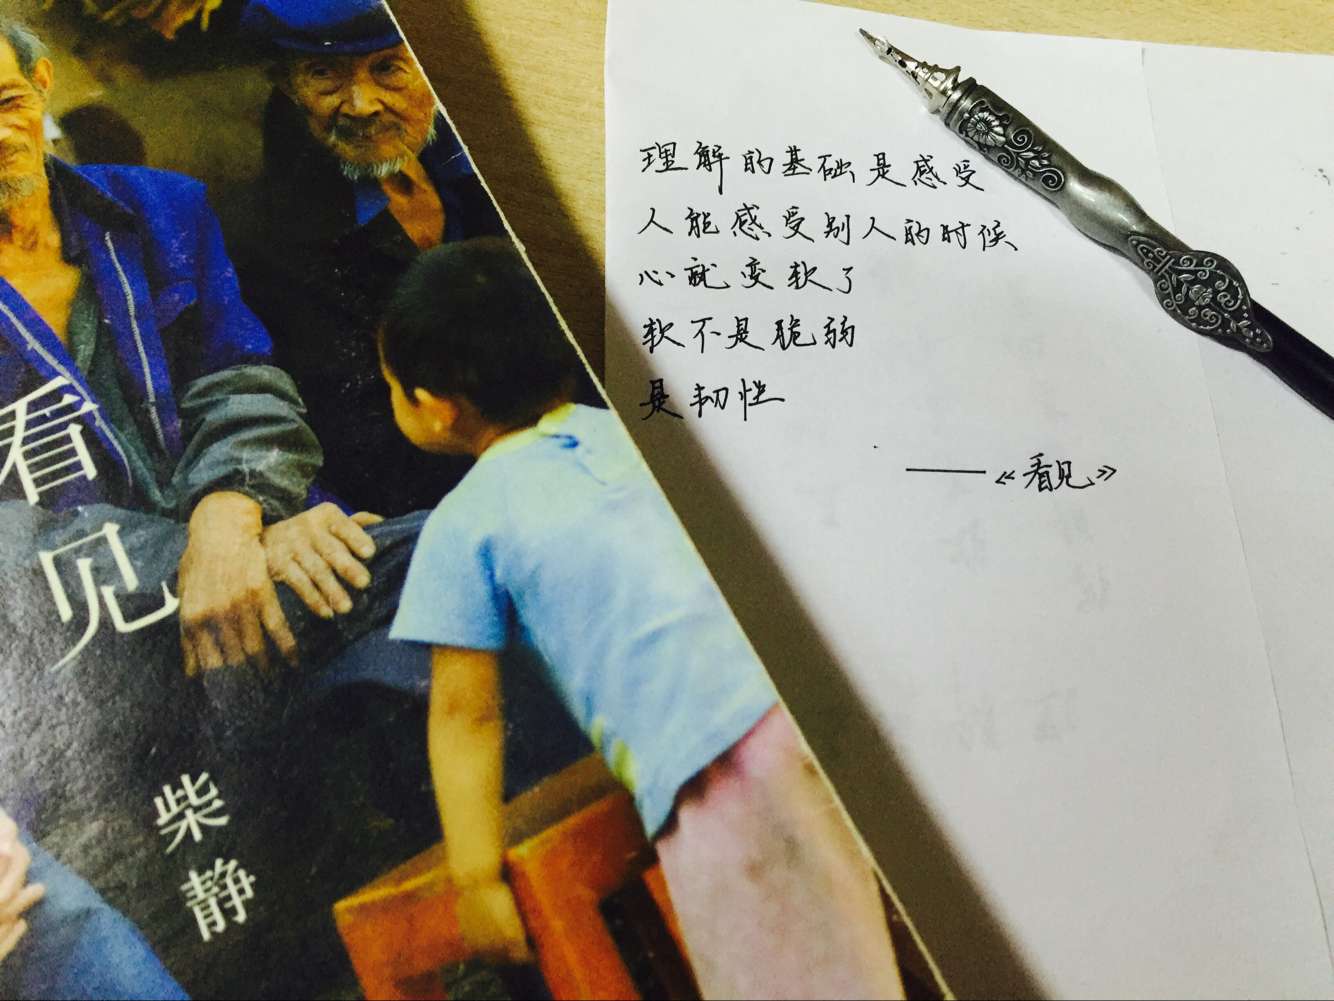 看见
柴静
理解的基础是感受
人能感受别人的时候
心就变软了
软不是脆弱
是韧性
——《看见》